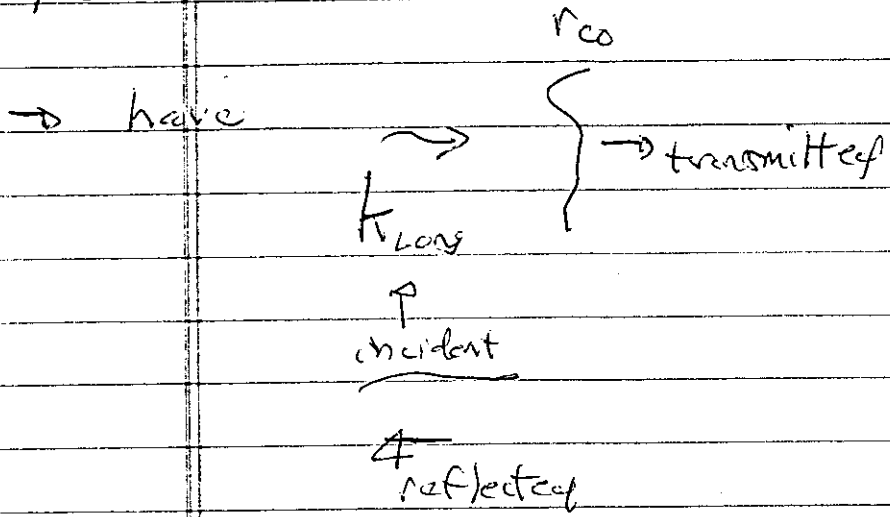 r_co
→ have
→ transmitted
k_Long
↑
incident
← reflected